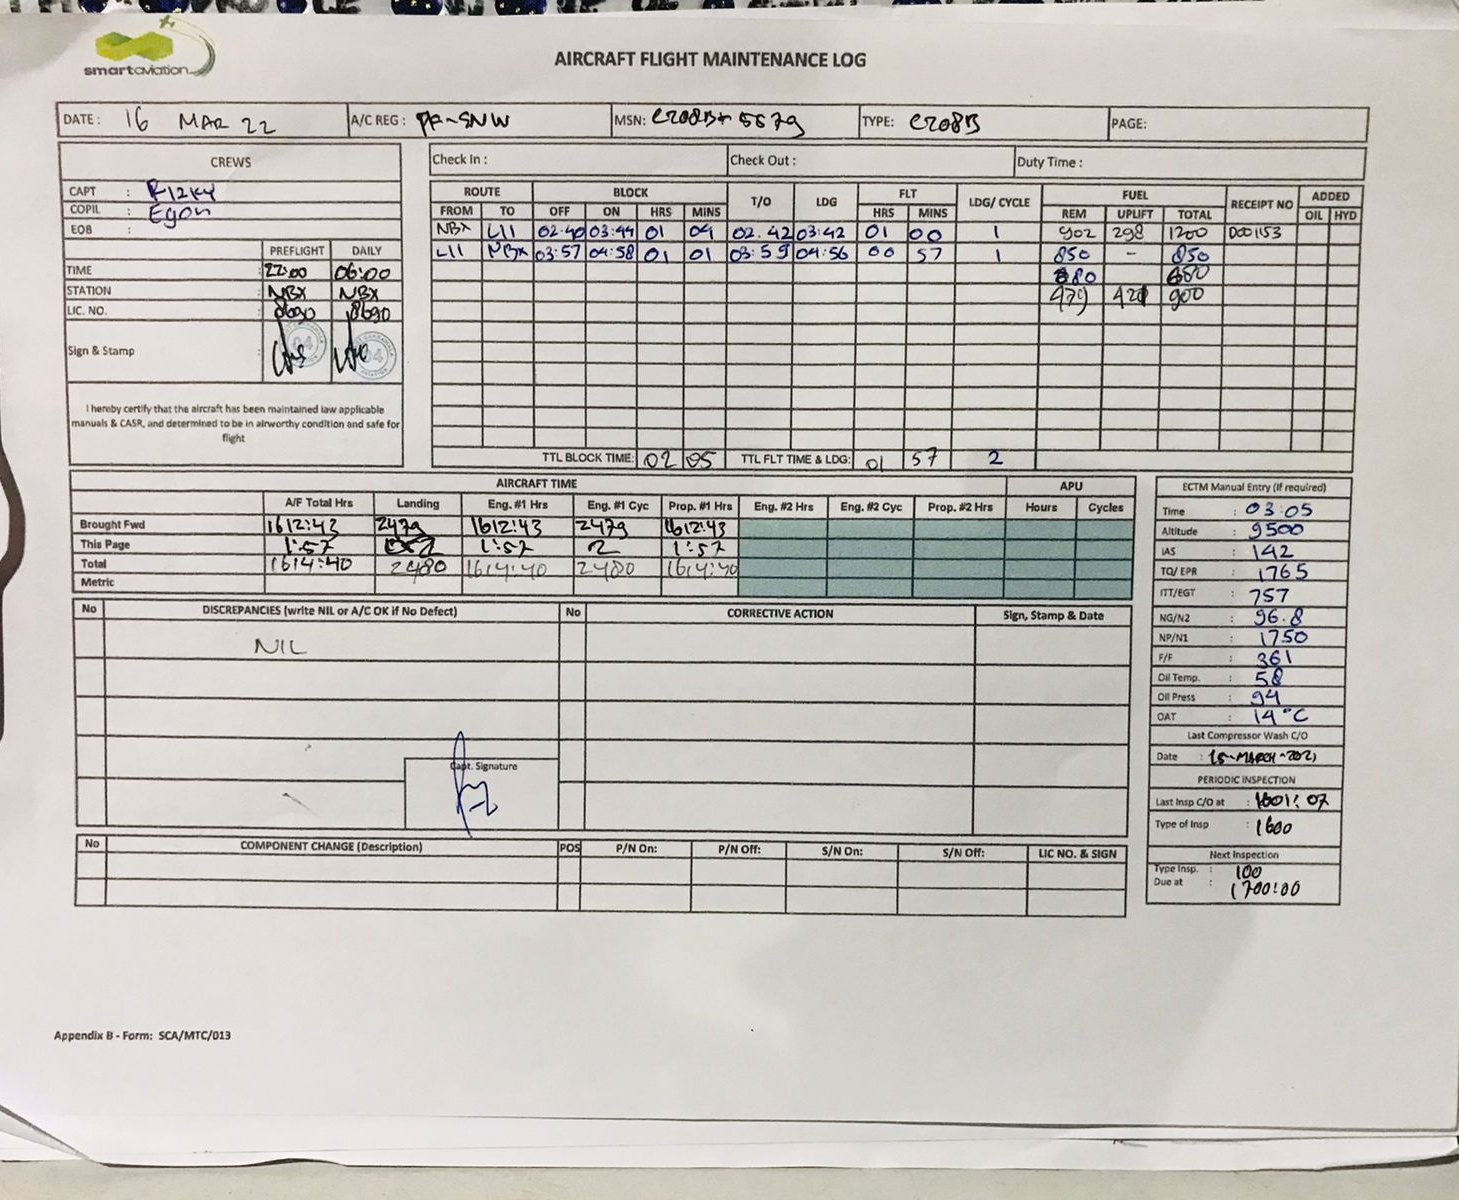 smartaviation
AIRCRAFT FLIGHT MAINTENANCE LOG
DATE : 16 MAR 22 A/C REG : PK-SNW MSN: C208B+5579 TYPE: C208B PAGE:
CREWS
CAPT : RIZKY
COPIL : Egon
EOB :
PREFLIGHT DAILY
TIME : 22:00 06:00
STATION : NBX NBX
LIC. NO. : 8690 8690
Sign & Stamp :
I hereby certify that the aircraft has been maintained law applicable
manuals & CASR, and determined to be in airworthy condition and safe for
flight
Check In : Check Out : Duty Time :
ROUTE BLOCK T/O LDG FLT LDG/ CYCLE FUEL RECEIPT NO ADDED
FROM TO OFF ON HRS MINS HRS MINS REM UPLIFT TOTAL OIL HYD
NBX LII 02:40 03:44 01 04 02.42 03:42 01 00 1 902 298 1200 D001153
LII NBX 03:57 04:58 01 01 03:59 04:56 00 57 1 850 - 850
680 680
479 421 900
TTL BLOCK TIME: 02 05 TTL FLT TIME & LDG: 01 57 2
AIRCRAFT TIME APU
A/F Total Hrs Landing Eng. #1 Hrs Eng. #1 Cyc Prop. #1 Hrs Eng. #2 Hrs Eng. #2 Cyc Prop. #2 Hrs Hours Cycles
Brought Fwd 1612:43 2479 1612:43 2479 1612:43
This Page 1:57 2 1:57 2 1:57
Total 1614:40 2480 1614:40 2480 1614:40
Metric
No DISCREPANCIES (write NIL or A/C OK if No Defect) No CORRECTIVE ACTION Sign, Stamp & Date
NIL
Capt. Signature
No COMPONENT CHANGE (Description) POS P/N On: P/N Off: S/N On: S/N Off: LIC NO. & SIGN
ECTM Manual Entry (If required)
Time : 03:05
Altitude : 9500
IAS : 142
TQ/ EPR : 1765
ITT/EGT : 757
NG/N2 : 96.8
NP/N1 : 1750
F/F : 361
Oil Temp. : 58
Oil Press : 94
OAT : 14°C
Last Compressor Wash C/O
Date : 15-MARCH-2021
PERIODIC INSPECTION
Last Insp C/O at : 1601:07
Type of Insp : 1600
Next Inspection
Type Insp. : 100
Due at : 1700:00
Appendix B - Form: SCA/MTC/013